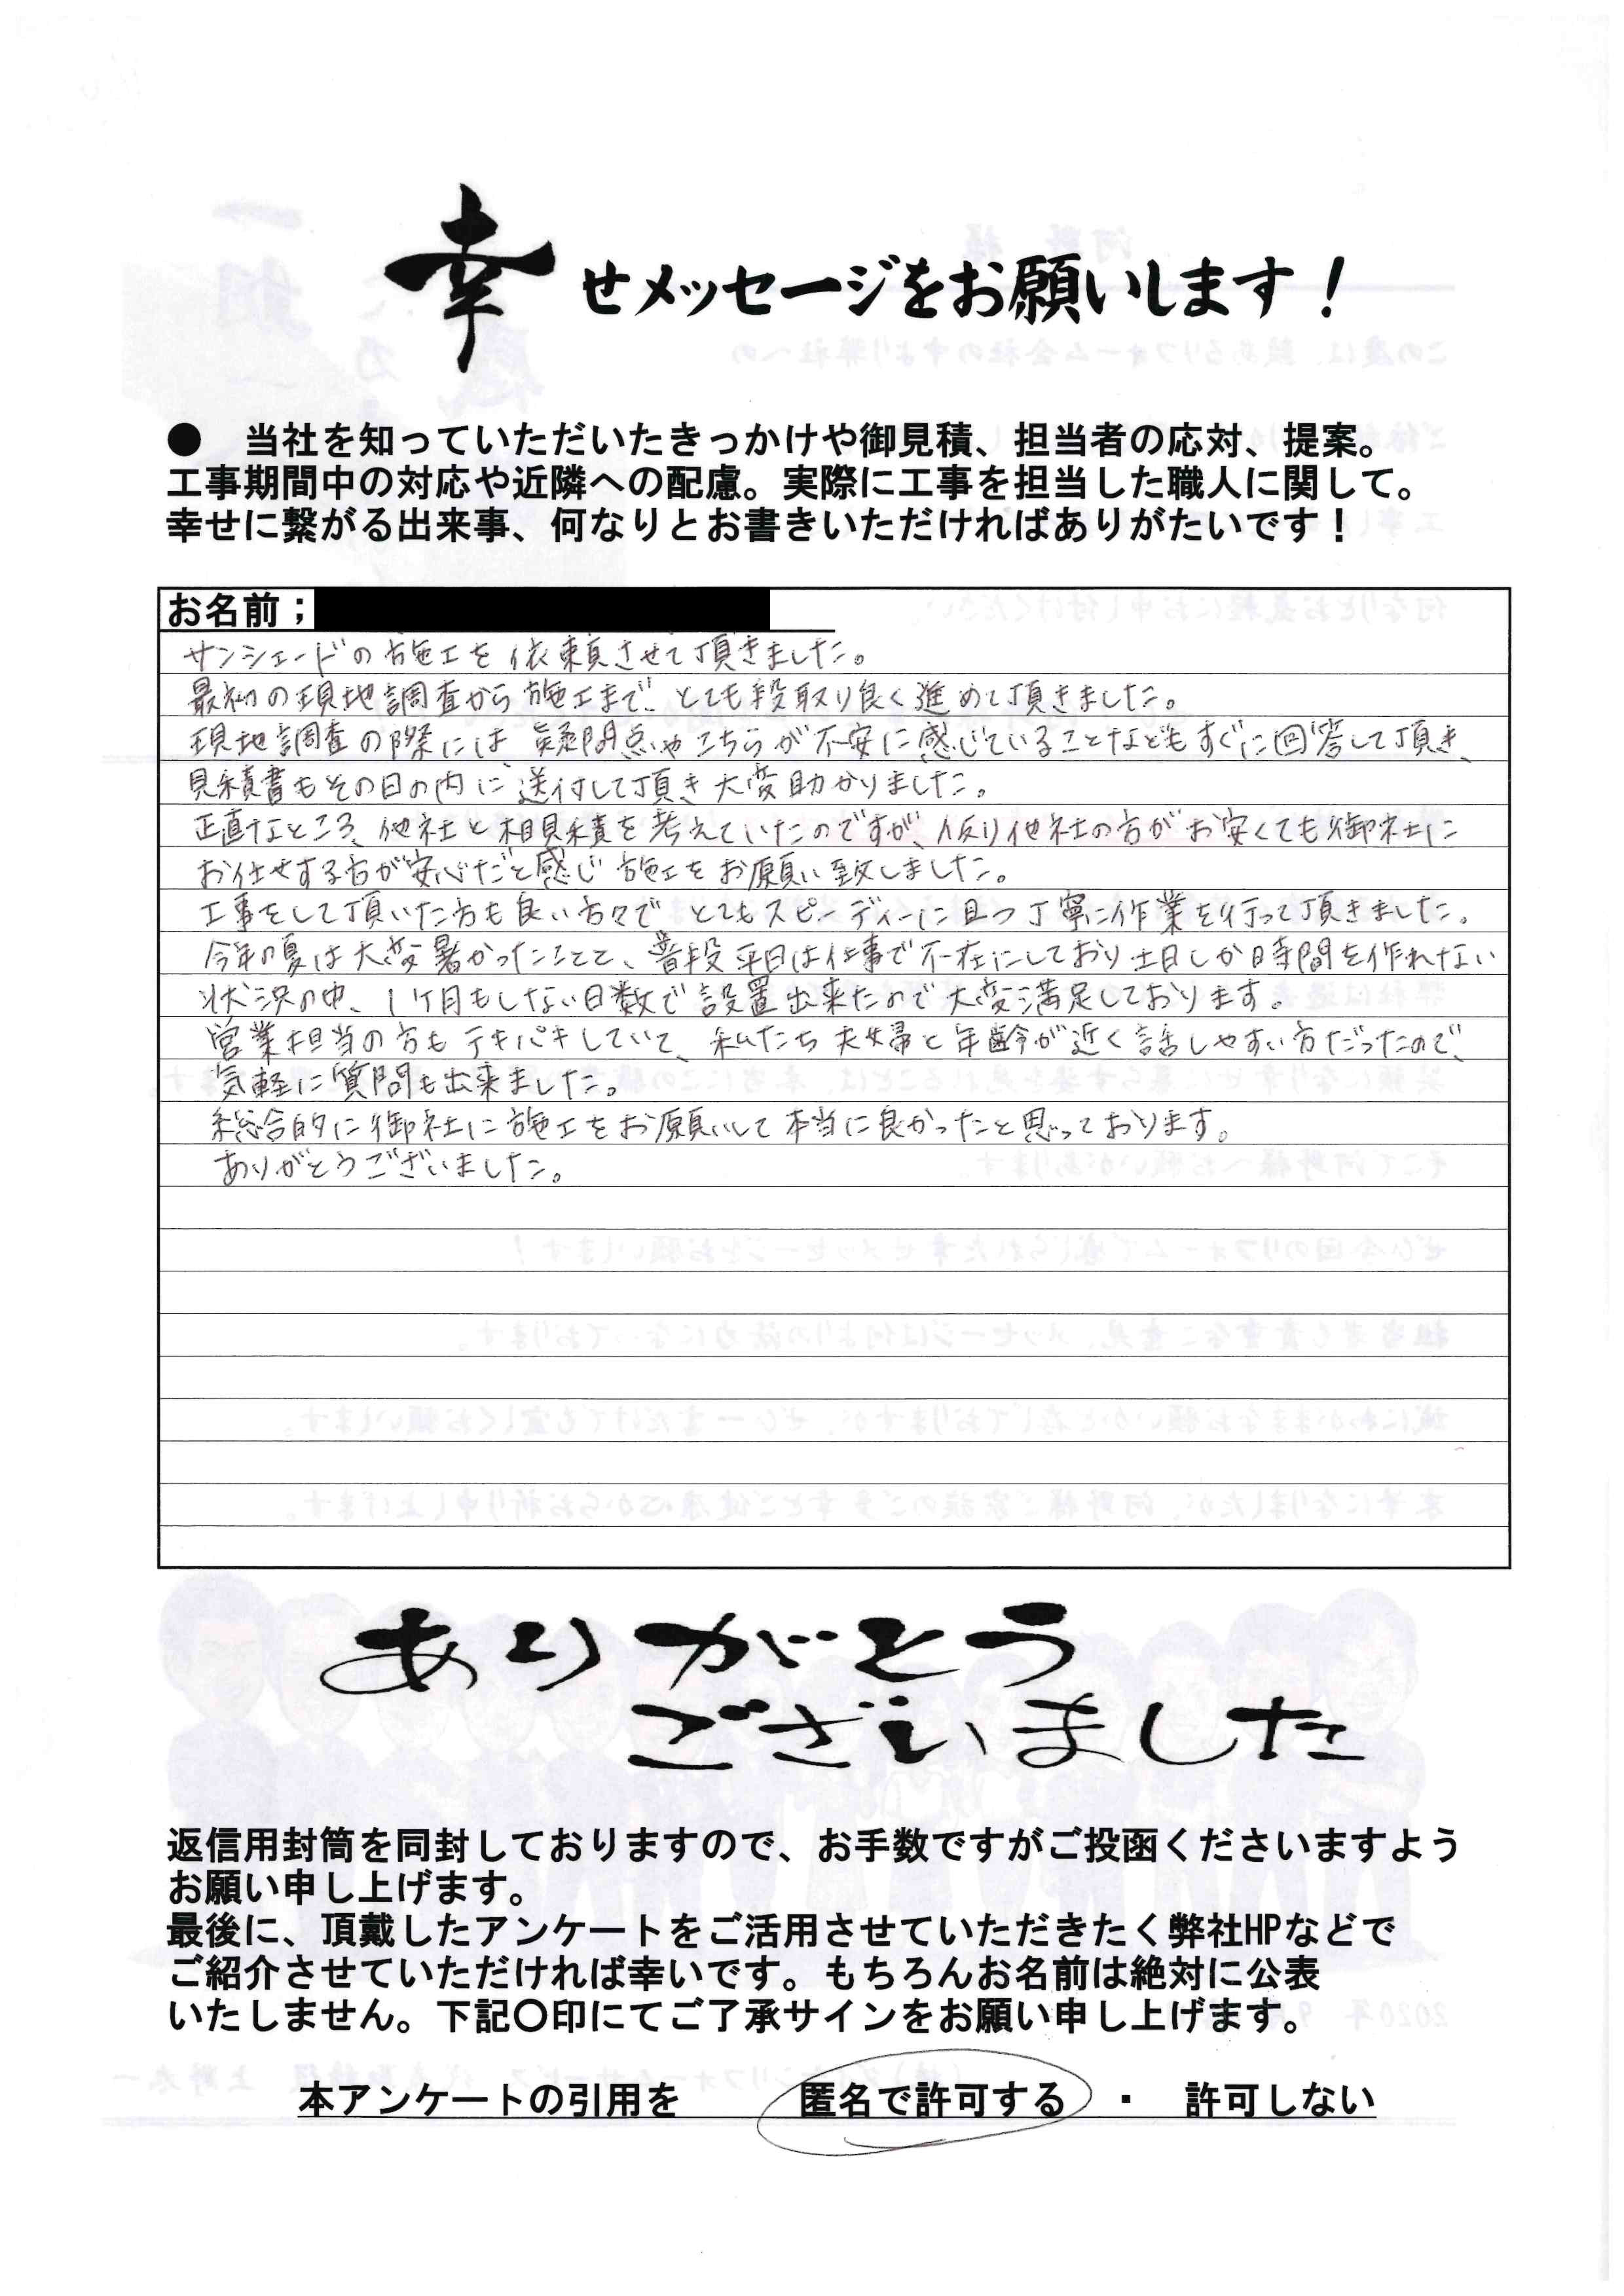 幸せメッセージをお願いします！
●　当社を知っていただいたきっかけや御見積、担当者の応対、提案。
工事期間中の対応や近隣への配慮。実際に工事を担当した職人に関して。
幸せに繋がる出来事、何なりとお書きいただければありがたいです！
お名前；
サンシェードの施工を依頼させて頂きました。
最初の現地調査から施工まで、とても段取り良く進めて頂きました。
現地調査の際には疑問点やこちらが不安に感じていることなどもすぐに回答して頂き、
見積書もその日の内に送付して頂き大変助かりました。
正直なところ、他社と相見積を考えていたのですが、仮り他社の方がお安くても御社に
お任せする方が安心だと感じ施工をお願い致しました。
工事をして頂いた方も良い方々でとてもスピーディーに且つ丁寧に作業を行って頂きました。
今年の夏は大変暑かったことと、普段平日は仕事で不在にしており土日しか時間を作れない
状況の中、1ケ月もしない日数で設置出来たので大変満足しております。
営業担当の方もテキパキしていて、私たち夫婦と年齢が近く話しやすい方だったので、
気軽に質問も出来ました。
総合的に御社に施工をお願いして本当に良かったと思っております。
ありがとうございました。
ありがとう
ございました
返信用封筒を同封しておりますので、お手数ですがご投函くださいますよう
お願い申し上げます。
最後に、頂戴したアンケートをご活用させていただきたく弊社HPなどで
ご紹介させていただければ幸いです。もちろんお名前は絶対に公表
いたしません。下記〇印にてご了承サインをお願い申し上げます。
本アンケートの引用を　匿名で許可する　・　許可しない